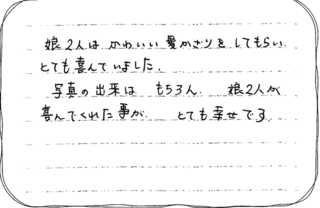 娘2人は かわいい髪かざりをしてもらい
とても喜んでいました。
写真の出来は もちろん、 娘2人が
喜んでくれた事が、 とても幸せです